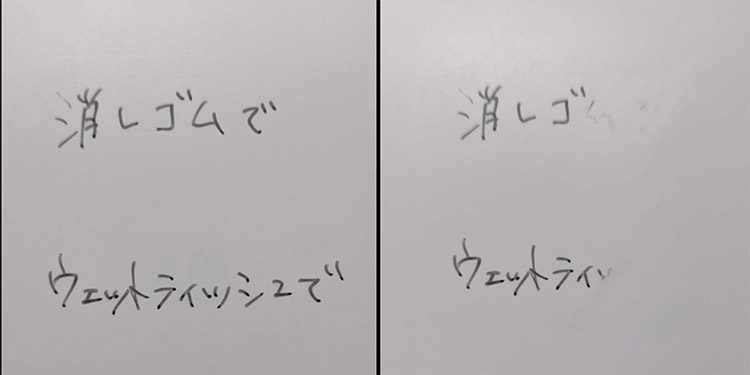 消しゴムで
ウェットティッシュで
消しゴ
ウェットティッ